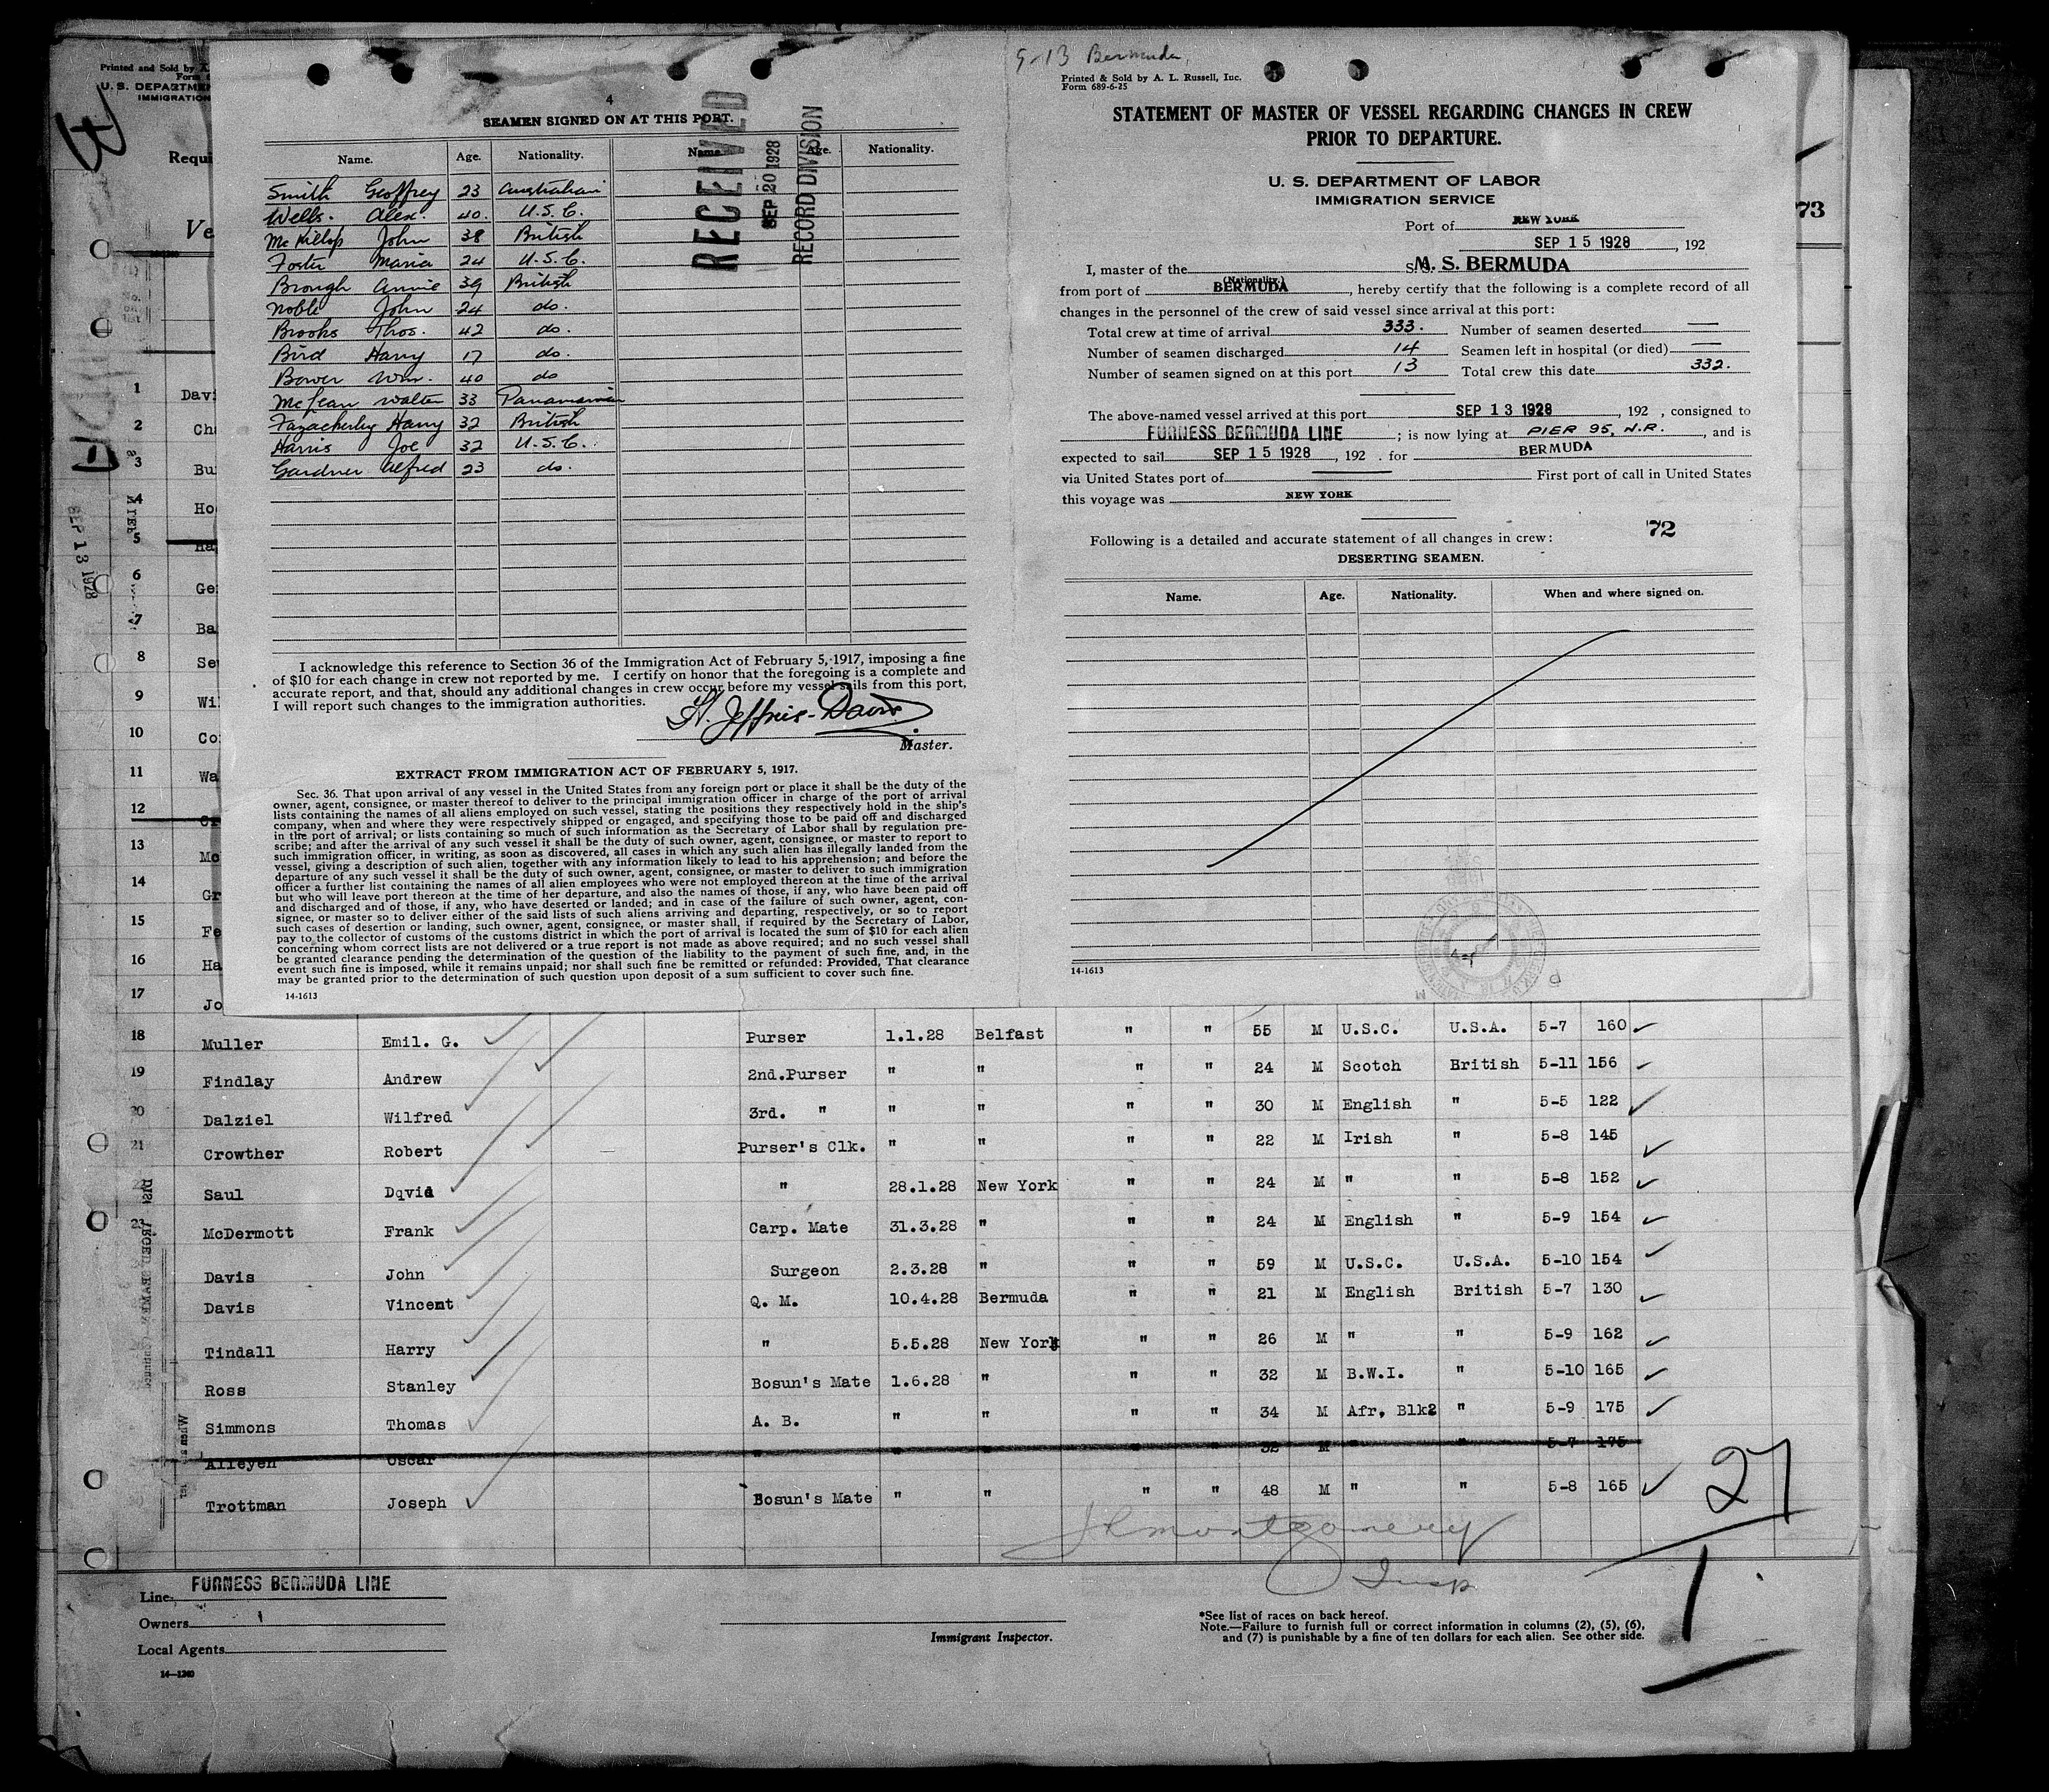 Printed and Sold by A.
Form 6
U. S. DEPARTME
IMMIGRATION
Requi
Ve
4
SEAMEN SIGNED ON AT THIS PORT.
RECEIVED
SEP 20 1928
RECORD DIVISION
Name. Age. Nationality. Name. Age. Nationality.
Smith Geoffrey 23 Australian
Wells. Alex. 40. U.S.C.
McKillop John 38 British
Foster Maria 24 U.S.C.
Brough Annie 39 British
Noble John 24 do.
Brooks Thos. 42 do.
Bird Harry 17 do.
Bower Wm. 40 do
McLean Walter 33 Panamanian
Fazacherley Harry 32 British
Harris Joe 32 U.S.C.
Gardner Alfred 23 do.
I acknowledge this reference to Section 36 of the Immigration Act of February 5, 1917, imposing a fine
of $10 for each change in crew not reported by me. I certify on honor that the foregoing is a complete and
accurate report, and that, should any additional changes in crew occur before my vessel sails from this port,
I will report such changes to the immigration authorities.
H. Jeffries-Davis
Master.
EXTRACT FROM IMMIGRATION ACT OF FEBRUARY 5, 1917.
Sec. 36. That upon arrival of any vessel in the United States from any foreign port or place it shall be the duty of the
owner, agent, consignee, or master thereof to deliver to the principal immigration officer in charge of the port of arrival
lists containing the names of all aliens employed on such vessel, stating the positions they respectively hold in the ship's
company, when and where they were respectively shipped or engaged, and specifying those to be paid off and discharged
in the port of arrival; or lists containing so much of such information as the Secretary of Labor shall by regulation pre-
scribe; and after the arrival of any such vessel it shall be the duty of such owner, agent, consignee, or master to report to
such immigration officer, in writing, as soon as discovered, all cases in which any such alien has illegally landed from the
vessel, giving a description of such alien, together with any information likely to lead to his apprehension; and before the
departure of any such vessel it shall be the duty of such owner, agent, consignee, or master to deliver to such immigration
officer a further list containing the names of all alien employees who were not employed thereon at the time of the arrival
but who will leave port thereon at the time of her departure, and also the names of those, if any, who have been paid off
and discharged and of those, if any, who have deserted or landed; and in case of the failure of such owner, agent, con-
signee, or master so to deliver either of the said lists of such aliens arriving and departing, respectively, or so to report
such cases of desertion or landing, such owner, agent, consignee, or master shall, if required by the Secretary of Labor,
pay to the collector of customs of the customs district in which the port of arrival is located the sum of $10 for each alien
concerning whom correct lists are not delivered or a true report is not made as above required; and no such vessel shall
be granted clearance pending the determination of the question of the liability to the payment of such fine, and, in the
event such fine is imposed, while it remains unpaid; nor shall such fine be remitted or refunded: Provided, That clearance
may be granted prior to the determination of such question upon deposit of a sum sufficient to cover such fine.
14-1613
9-13 Bermuda,
Printed & Sold by A. L. Russell, Inc.
Form 689-6-25
STATEMENT OF MASTER OF VESSEL REGARDING CHANGES IN CREW
PRIOR TO DEPARTURE.
U. S. DEPARTMENT OF LABOR
IMMIGRATION SERVICE
Port of NEW YORK
SEP 15 1928, 192
I, master of the S. S. M. S. BERMUDA
(Nationality.)
from port of BERMUDA, hereby certify that the following is a complete record of all
changes in the personnel of the crew of said vessel since arrival at this port:
Total crew at time of arrival 333. Number of seamen deserted —
Number of seamen discharged 14 Seamen left in hospital (or died) —
Number of seamen signed on at this port 13 Total crew this date 332.
The above-named vessel arrived at this port SEP 13 1928, 192 , consigned to
FURNESS BERMUDA LINE; is now lying at PIER 95, N.R., and is
expected to sail SEP 15 1928, 192 . for BERMUDA
via United States port of First port of call in United States
this voyage was NEW YORK
72
Following is a detailed and accurate statement of all changes in crew:
DESERTING SEAMEN.
Name. Age. Nationality. When and where signed on.
14-1613
73
SEP 13 1928
1 Dav
2 Ch
3 Bu
4 Ho
5 Ha
6 Ge
7 Ba
8 Se
9 Wi
10 Co
11 Wa
12 Cr
13 Mc
14 Gr
15 Fe
16 Ha
17 Jo
18 Muller Emil. G. Purser 1.1.28 Belfast " " 55 M U.S.C. U.S.A. 5-7 160
19 Findlay Andrew 2nd.Purser " " " " 24 M Scotch British 5-11 156
20 Dalziel Wilfred 3rd. " " " " " 30 M English " 5-5 122
21 Crowther Robert Purser's Clk. " " " " 22 M Irish " 5-8 145
Saul Dqvid " 28.1.28 New York " " 24 M " " 5-8 152
23 McDermott Frank Carp. Mate 31.3.28 " " " 24 M English " 5-9 154
Davis John Surgeon 2.3.28 " " " 59 M U.S.C. U.S.A. 5-10 154
Davis Vincent Q. M. 10.4.28 Bermuda " " 21 M English British 5-7 130
Tindall Harry " 5.5.28 New York " " 26 M " " 5-9 162
Ross Stanley Bosun's Mate 1.6.28 " " " 32 M B.W.I. " 5-10 165
Simmons Thomas A. B. " " " " 34 M Afr, Blk2 " 5-9 175
Alleyen Oscar " " " " " 32 M " " 5-7 175
Trottman Joseph Bosun's Mate " " " " 48 M " " 5-8 165
27
1
JHmontgomery
Insp
Line FURNESS BERMUDA LINE
Owners
Local Agents
14-1240
Immigrant Inspector.
*See list of races on back hereof.
Note.—Failure to furnish full or correct information in columns (2), (5), (6),
and (7) is punishable by a fine of ten dollars for each alien. See other side.